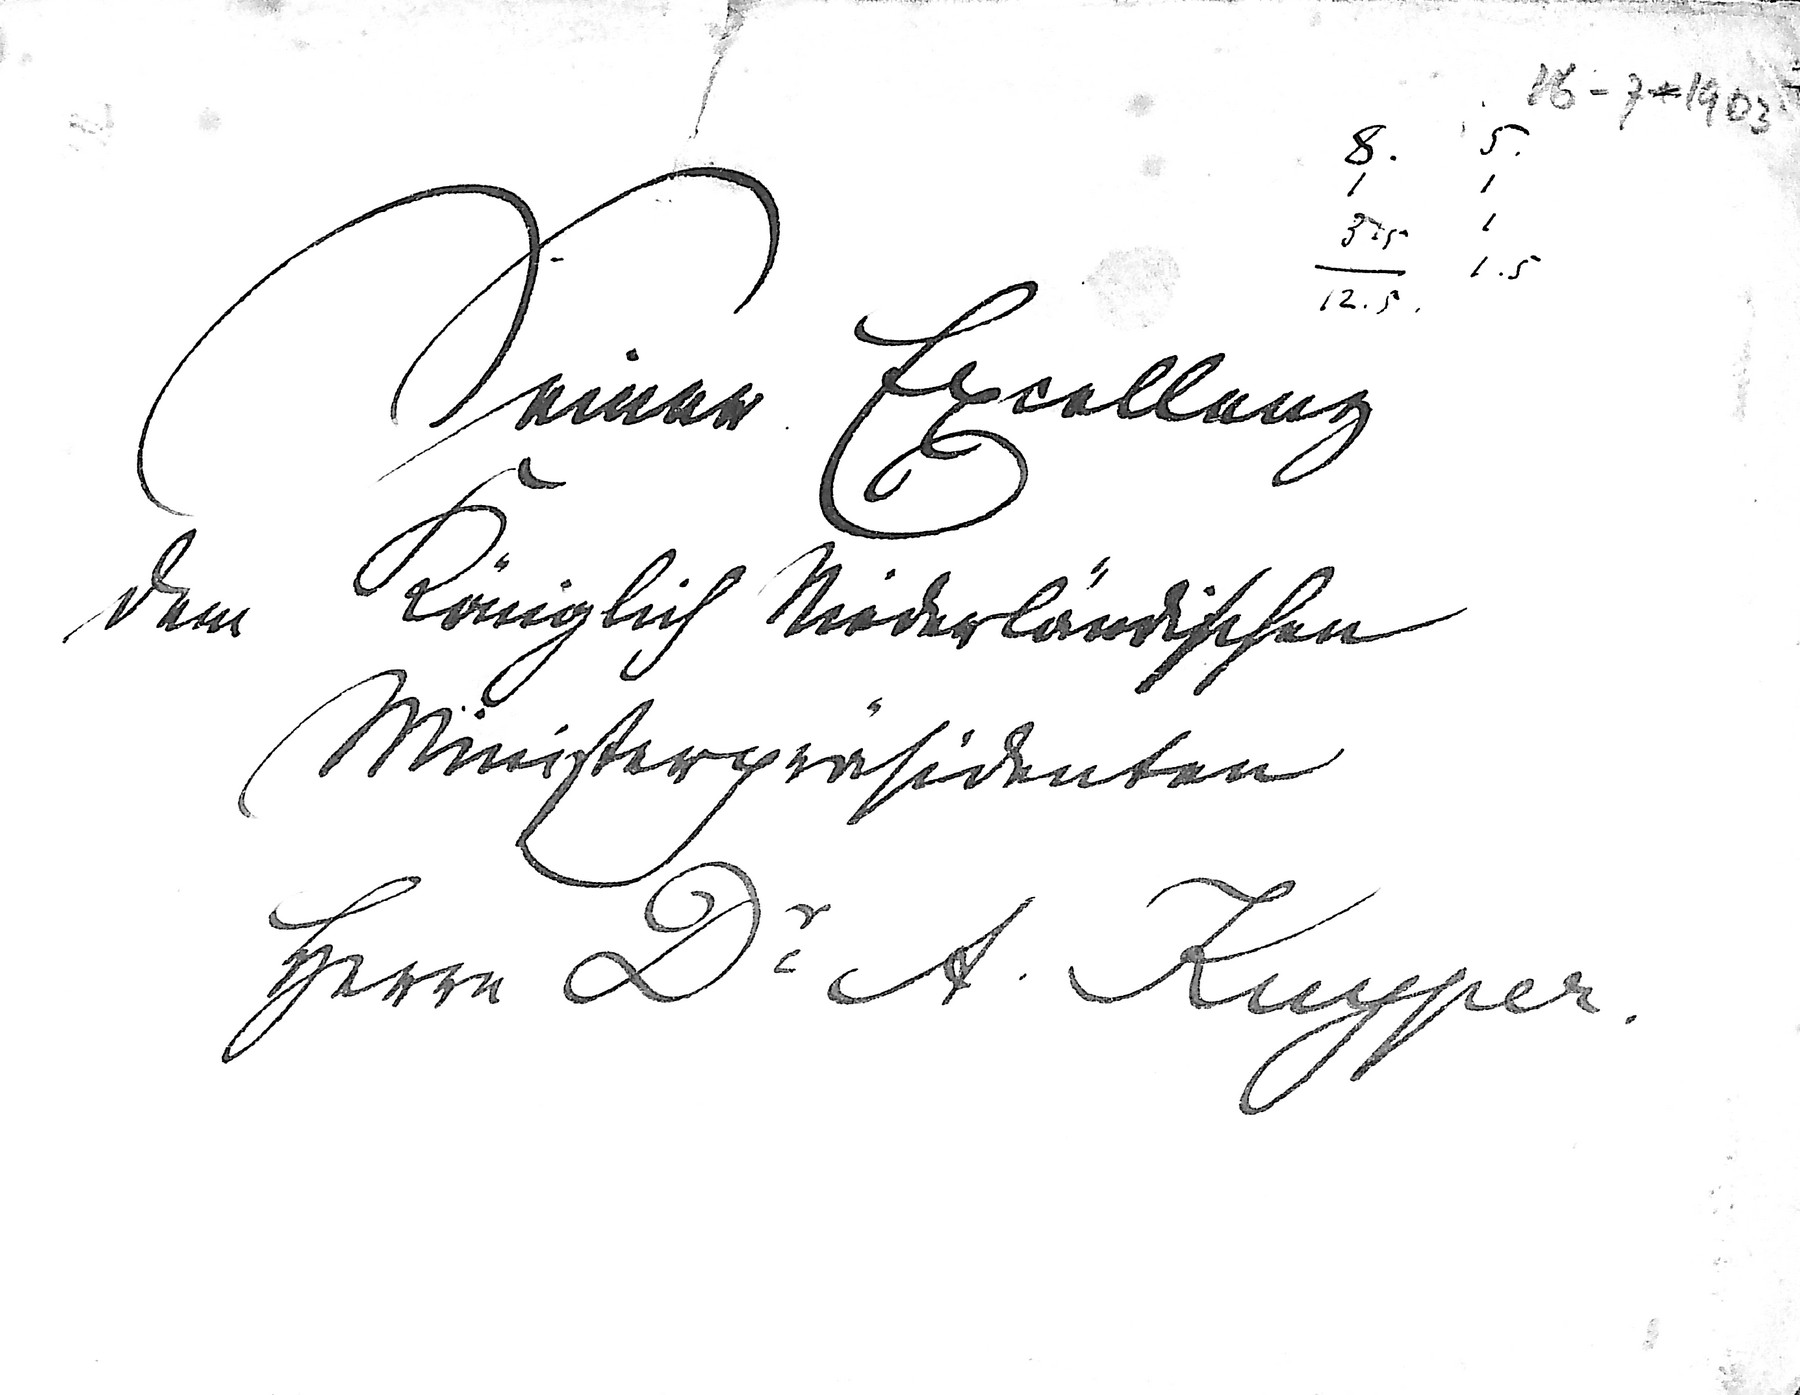 16-7-1903
8. 5.
1 1
3.75 1
12.5. 1.5
Seiner Excellenz
dem Königlich Niederländischen
Ministerpräsidenten
Herrn Dr. A. Kuyper.